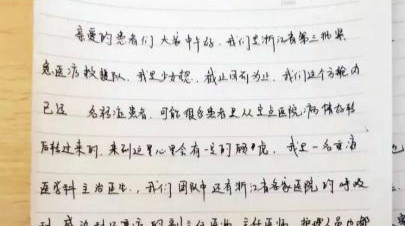 亲爱的患者们大家中午好，我们是浙江省第三批紧
急医疗救援队，我是 截止目前为止，我们这个方舱内
已经 名轻症患者，可能很多患者是从定点医院病情好转
后转过来的，来到这里心里会有一定的顾虑，我是一名重症
医学科主治医生，我们团队中还有浙江省各家医院的呼吸
科 感染科 重症的副主任医师 主任医师 护理人员